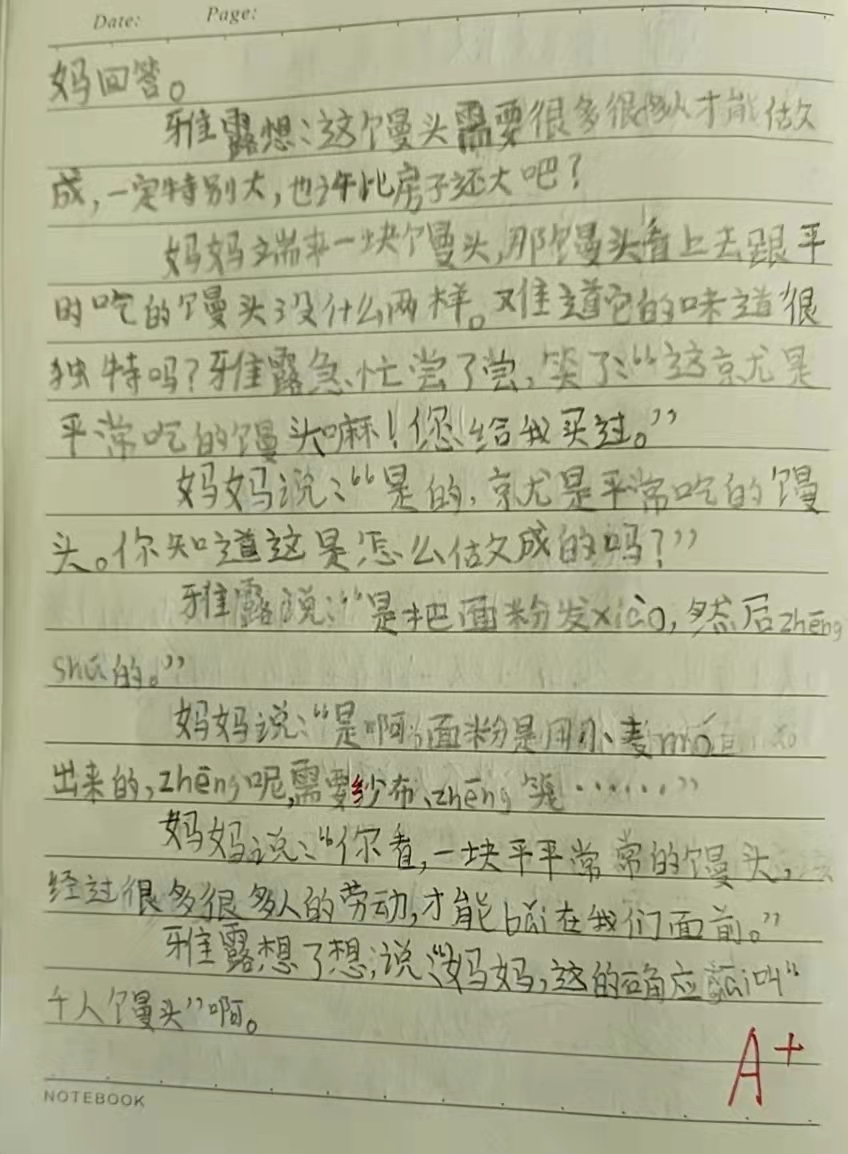 Date: Page:
妈回答。
雅露想：这个馒头需要很多很多人才能做
成，一定特别大，也许比房子还大吧？
妈妈端来一块馒头，那馒头看上去跟平
时吃的馒头没什么两样。难道它的味道很
独特吗？雅露急忙尝了尝，笑了：“这就是
平常吃的馒头嘛！您给我买过。”
妈妈说：“是的，就是平常吃的馒
头。你知道这是怎么做成的吗？”
雅露说：“是把面粉发xiào，然后zhēng
shú的。”
妈妈说：“是啊，面粉是用小麦mó
出来的，zhēng呢，需要纱布、zhēng笼……”
妈妈说：“你看，一块平平常常的馒头，
经过很多很多人的劳动，才能bǎi在我们面前。”
雅露想了想，说：“妈妈，这的确应gāi叫“
千人馒头”啊。
A+
NOTEBOOK